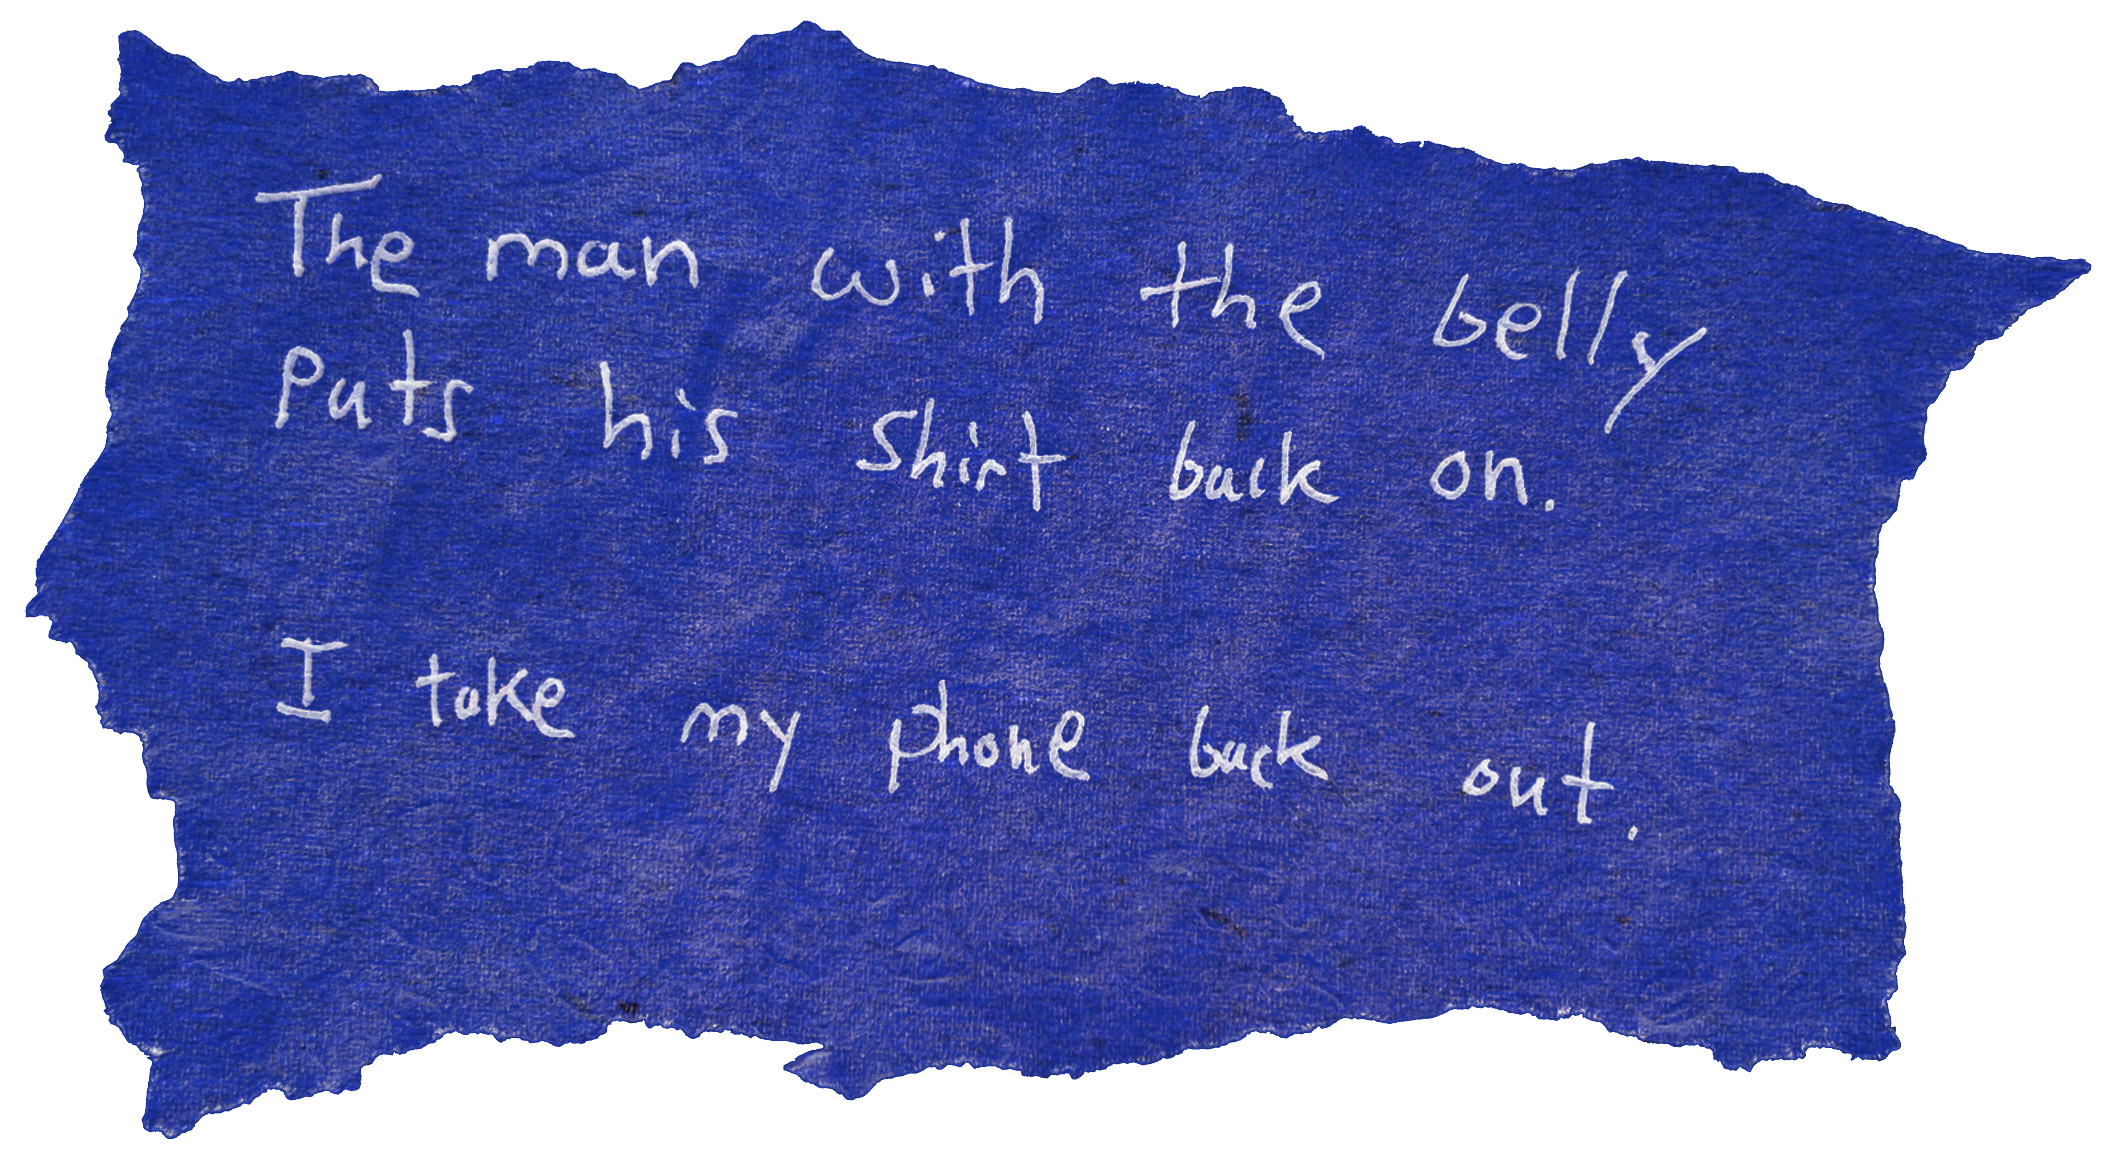 The man with the belly
puts his shirt back on.
I take my phone back out.